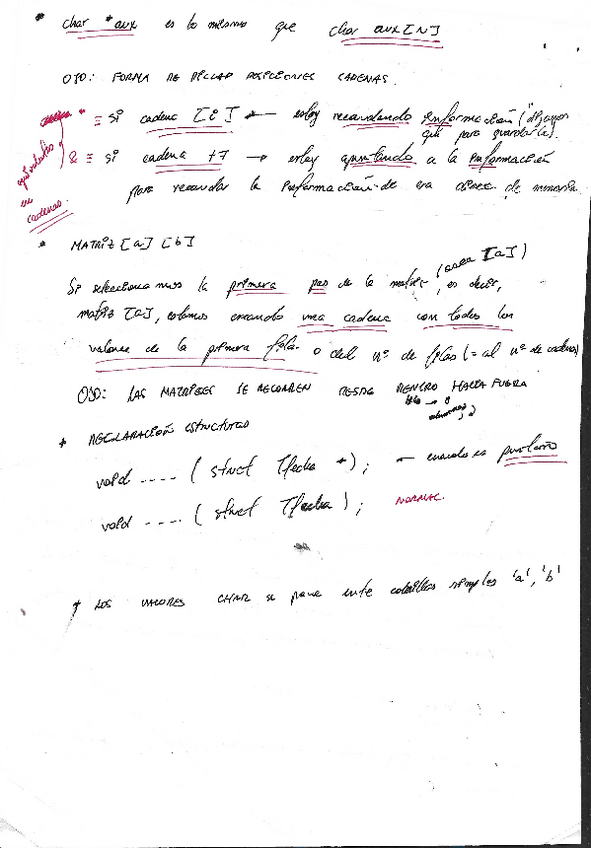 * char *aux es lo mismo que char aux[N]
OJO: FORMA DE POSICIONES CADENAS.
* ≡ si cadena [i] ← estoy recaudando información (
que para guardarla).
& ≡ si cadena +7 → estoy apuntando a la información
para recaudar la información de esa direc. de memoria
equivalentes
en
cadenas.
* MATRIZ [a] [b]
(area [a])
Si seleccionamos la primera de la matriz, es decir,
matriz [a], estamos creando una cadena con todos los
valores de la primera fila. o del nº de filas (= al nº de cadenas)
OJO: LAS MATRICES SE RECORREN DESDE DENTRO HACIA FUERA
* DECLARACIÓN ESTRUCTURAS
void .... ( struct Tfecha *); ← cuando es puntero
void .... ( struct Tfecha ); NORMAL.
* LOS VALORES CHAR se pone entre comillas simples 'a', 'b'